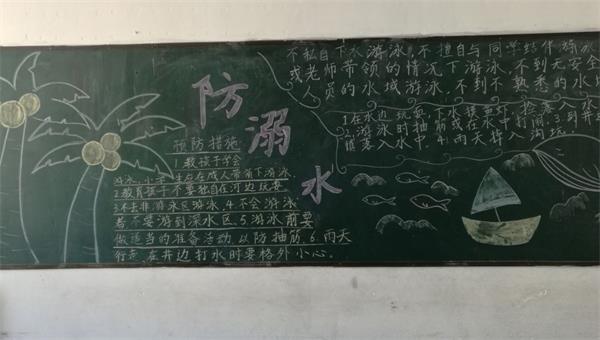 防溺水
预防措施
1.教孩子学会
游泳,小学生应在成人带领下游泳
2.教育孩子不要独自在河边玩耍
3.不去非游泳区游泳.4.不会游泳
者不要游到深水区5.游泳前要
做适当的准备活动,以防抽筋.6.雨天
行走,在井边打水时要格外小心。
不私自下水游泳,不擅自与同学结伴游泳
或老师带领的情况下游泳,不到无安全
人员的水域游泳,不到不熟悉的水
1.在水边玩耍
2.游泳时抽筋
入水中.4.雨天